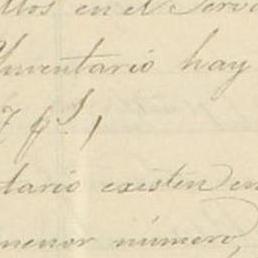 llos en el Servi
Inventario hay
7 p.s,
tario existen en
menor número,